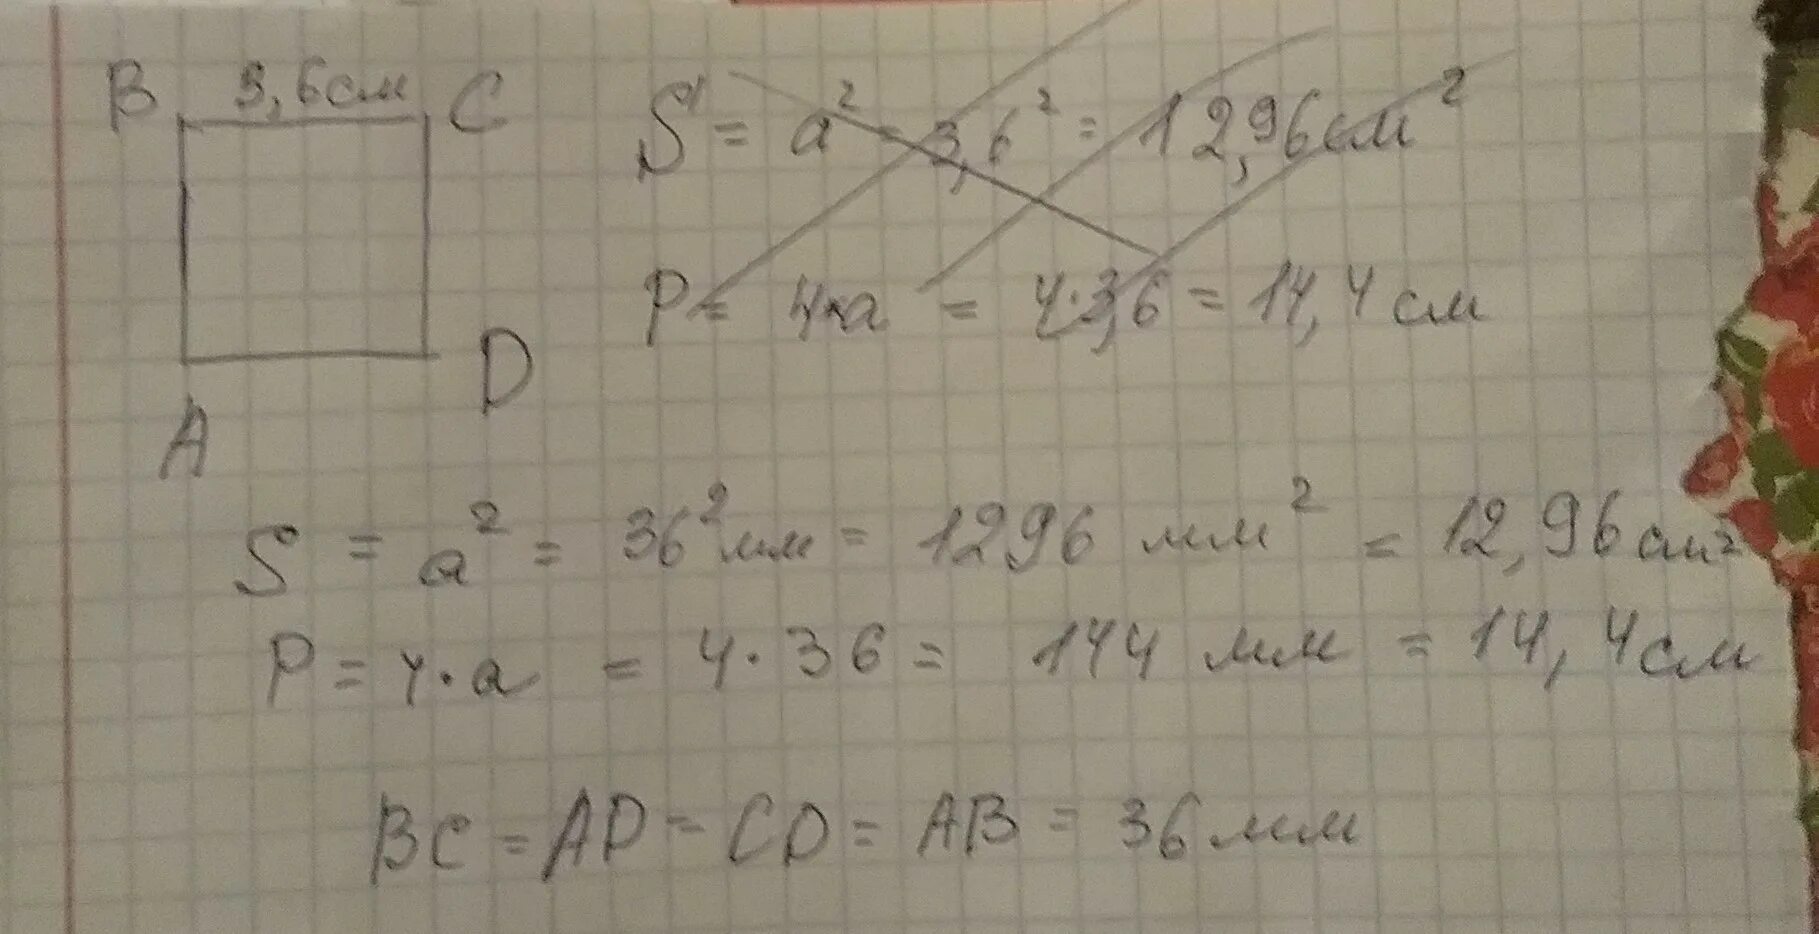 B 3,6 см C
A D
S = a² = 3,6² = 12,96 см²
P = 4·a = 4·3,6 = 14,4 см
S = a² = 36² мм = 1296 мм² = 12,96 см²
P = 4·a = 4·36 = 144 мм = 14,4 см
BC = AD = CD = AB = 36 мм